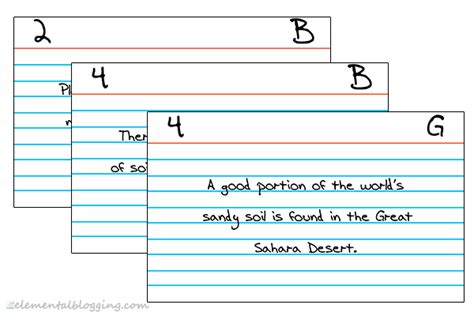 2 B
Pl
4 B
Ther
of soi
4 G
A good portion of the world's
sandy soil is found in the Great
Sahara Desert.
elementalblogging.com